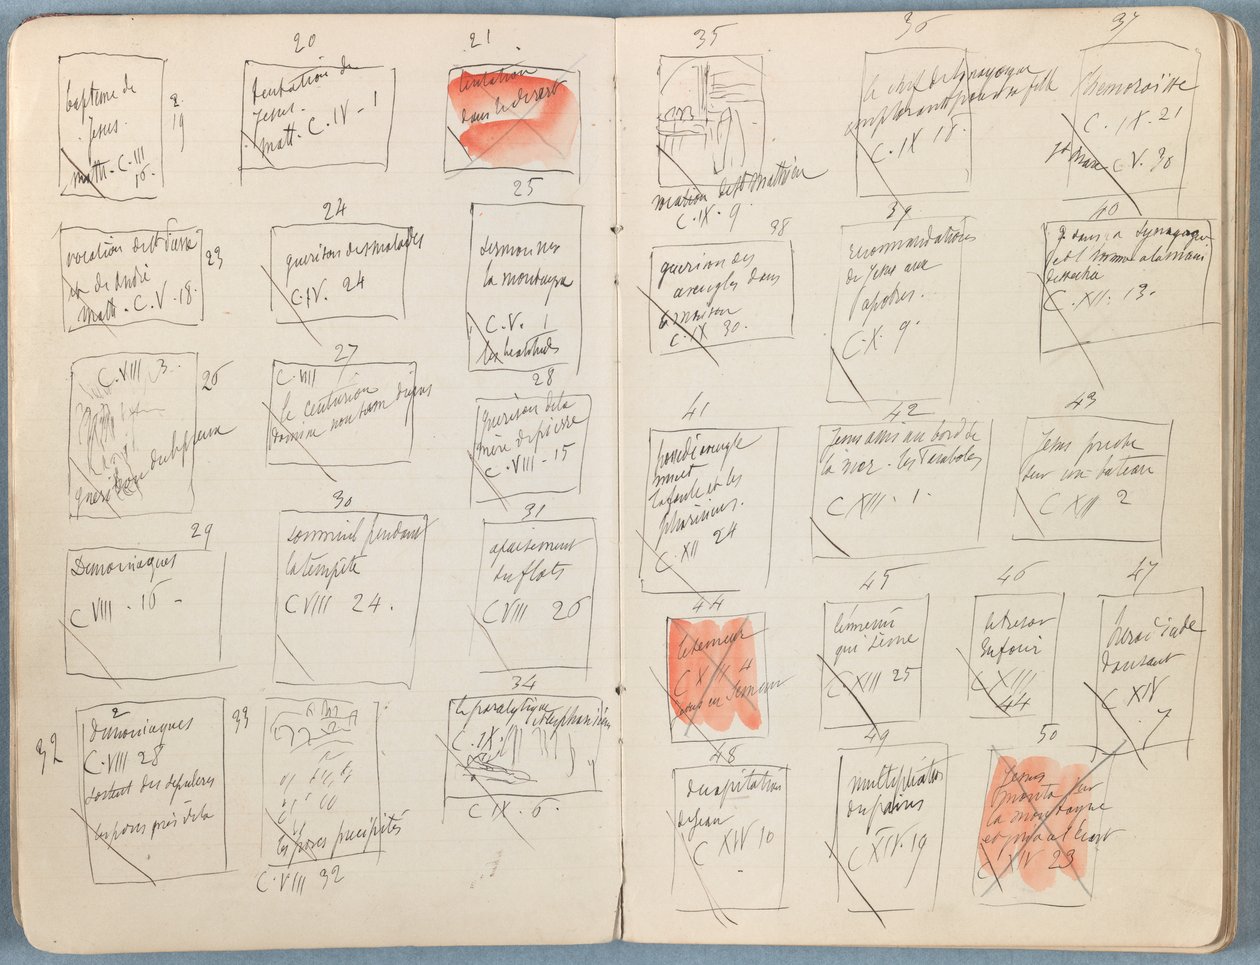 baptème de
Jésus.
Matth. C. III
16.
2
19
20
tentation de
Jesus.
Matt. C. IV - 1
21
tentation
dans le desert
vocation de St Pierre
et de André
Matth. C. V. 18.
23
24
guerison des malades
C. IV. 24
25
Sermon sur
la montagne
C. V. 1
les beatitudes
C. VIII 3.
26
guerison du lepreux
27
C. VIII
le centurion
Domine non sum dignus
28
Guerison de la
mère de pierre
C. VIII - 15
29
Demoniaques
C VIII . 16 -
30
sommeil pendant
la tempête
C VIII 24.
31
apaisement
des flots
C VIII 26
32
2
demoniaques
C. VIII 28
sortent des sepulcres
33
les porcs précipités
C. VIII 32
34
le paralytique
C. IX.
C IX. 6.
35
vocation de St Mathieu
C. IX. 9.
36
le chef de Synagogue
implorant pour sa fille
C. IX 18.
37
l'hemoroïsse
C. IX. 21
St Marc C. V. 30
38
guerison des
aveugles dans
la maison
C. IX 30.
39
recommandations
de Jesus aux
apotres.
C. X. 9.
40
J. dans la Synagogue
et l'homme a la main
dessechée
C. XII. 13.
41
possédé aveugle
muet
la foule et les
pharisiens.
C. XII 24
42
Jesus assis au bord de
la mer - les Paraboles
C XIII . 1.
43
Jesus preche
sur un bateau
C XIII 2
44
le semeur
C XIII 4
45
l'ennemi
qui sème
C. XIII 25
46
le tresor
enfoui
C. XIII
44
47
herodiade
dansant
C XIV
7
48
decapitation
de Jean
C XIV 10
49
multiplication
des pains
C XIV. 19
50
Jesus
monta sur
la montagne
et pria a l'écart
C XIV 23